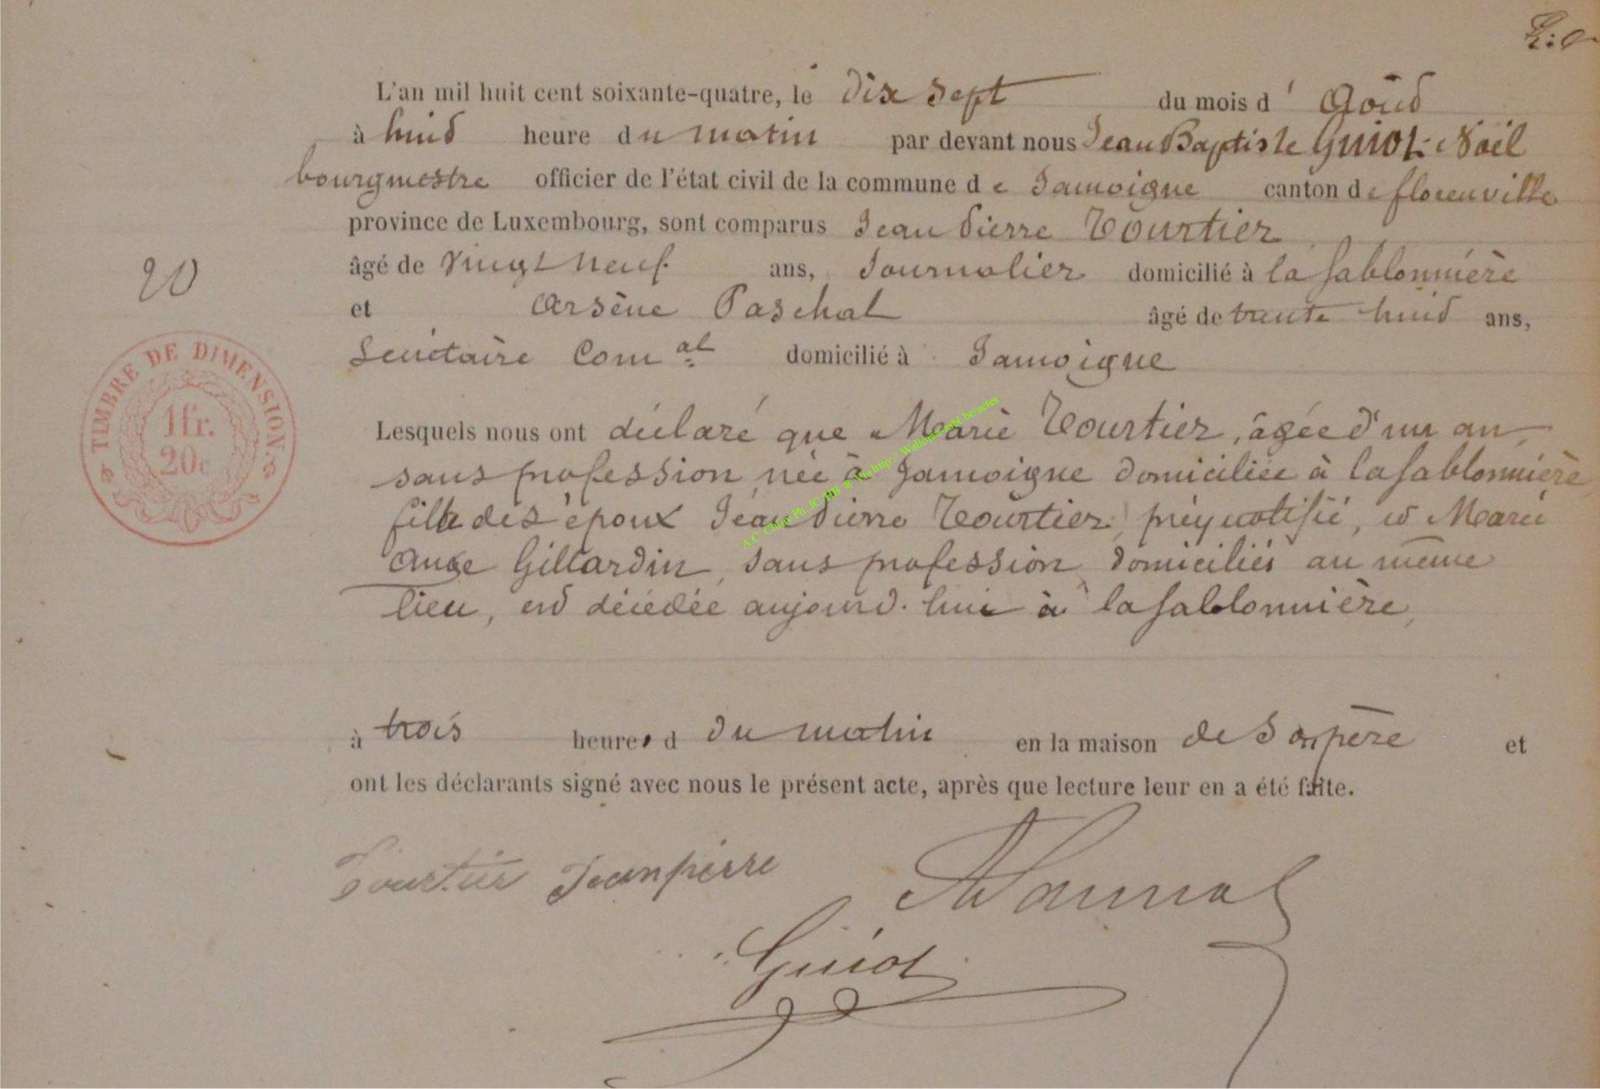 L'an mil huit cent soixante-quatre, le dix sept du mois d' Aoûd
à huid heure du matin par devant nous Jean Baptiste Guiot Noël
bourgmestre officier de l'état civil de la commune de Jamoigne canton de florenville
province de Luxembourg, sont comparus Jean Pierre Tourtier
âgé de vingt neuf ans, Journalier domicilié à la Sablonnière
20
et Arsène Paschal âgé de trente huid ans,
Secrétaire Com.al domicilié à Jamoigne
TIMBRE DE DIMENSION.
1fr.
20c
Lesquels nous ont déclaré que Marie Tourtier, âgée d'un an,
sans profession née à Jamoigne domiciliée à la Sablonnière,
fille des époux Jean Pierre Tourtier, préqualifié, et Marie
Ange Gillardin, sans profession, domiciliés au même
lieu, esd décédée aujourd'hui à la Sablonnière,
à trois heures d du matin en la maison de son père et
ont les déclarants signé avec nous le présent acte, après que lecture leur en a été faite.
Tourtier Jeanpierre
Guiot